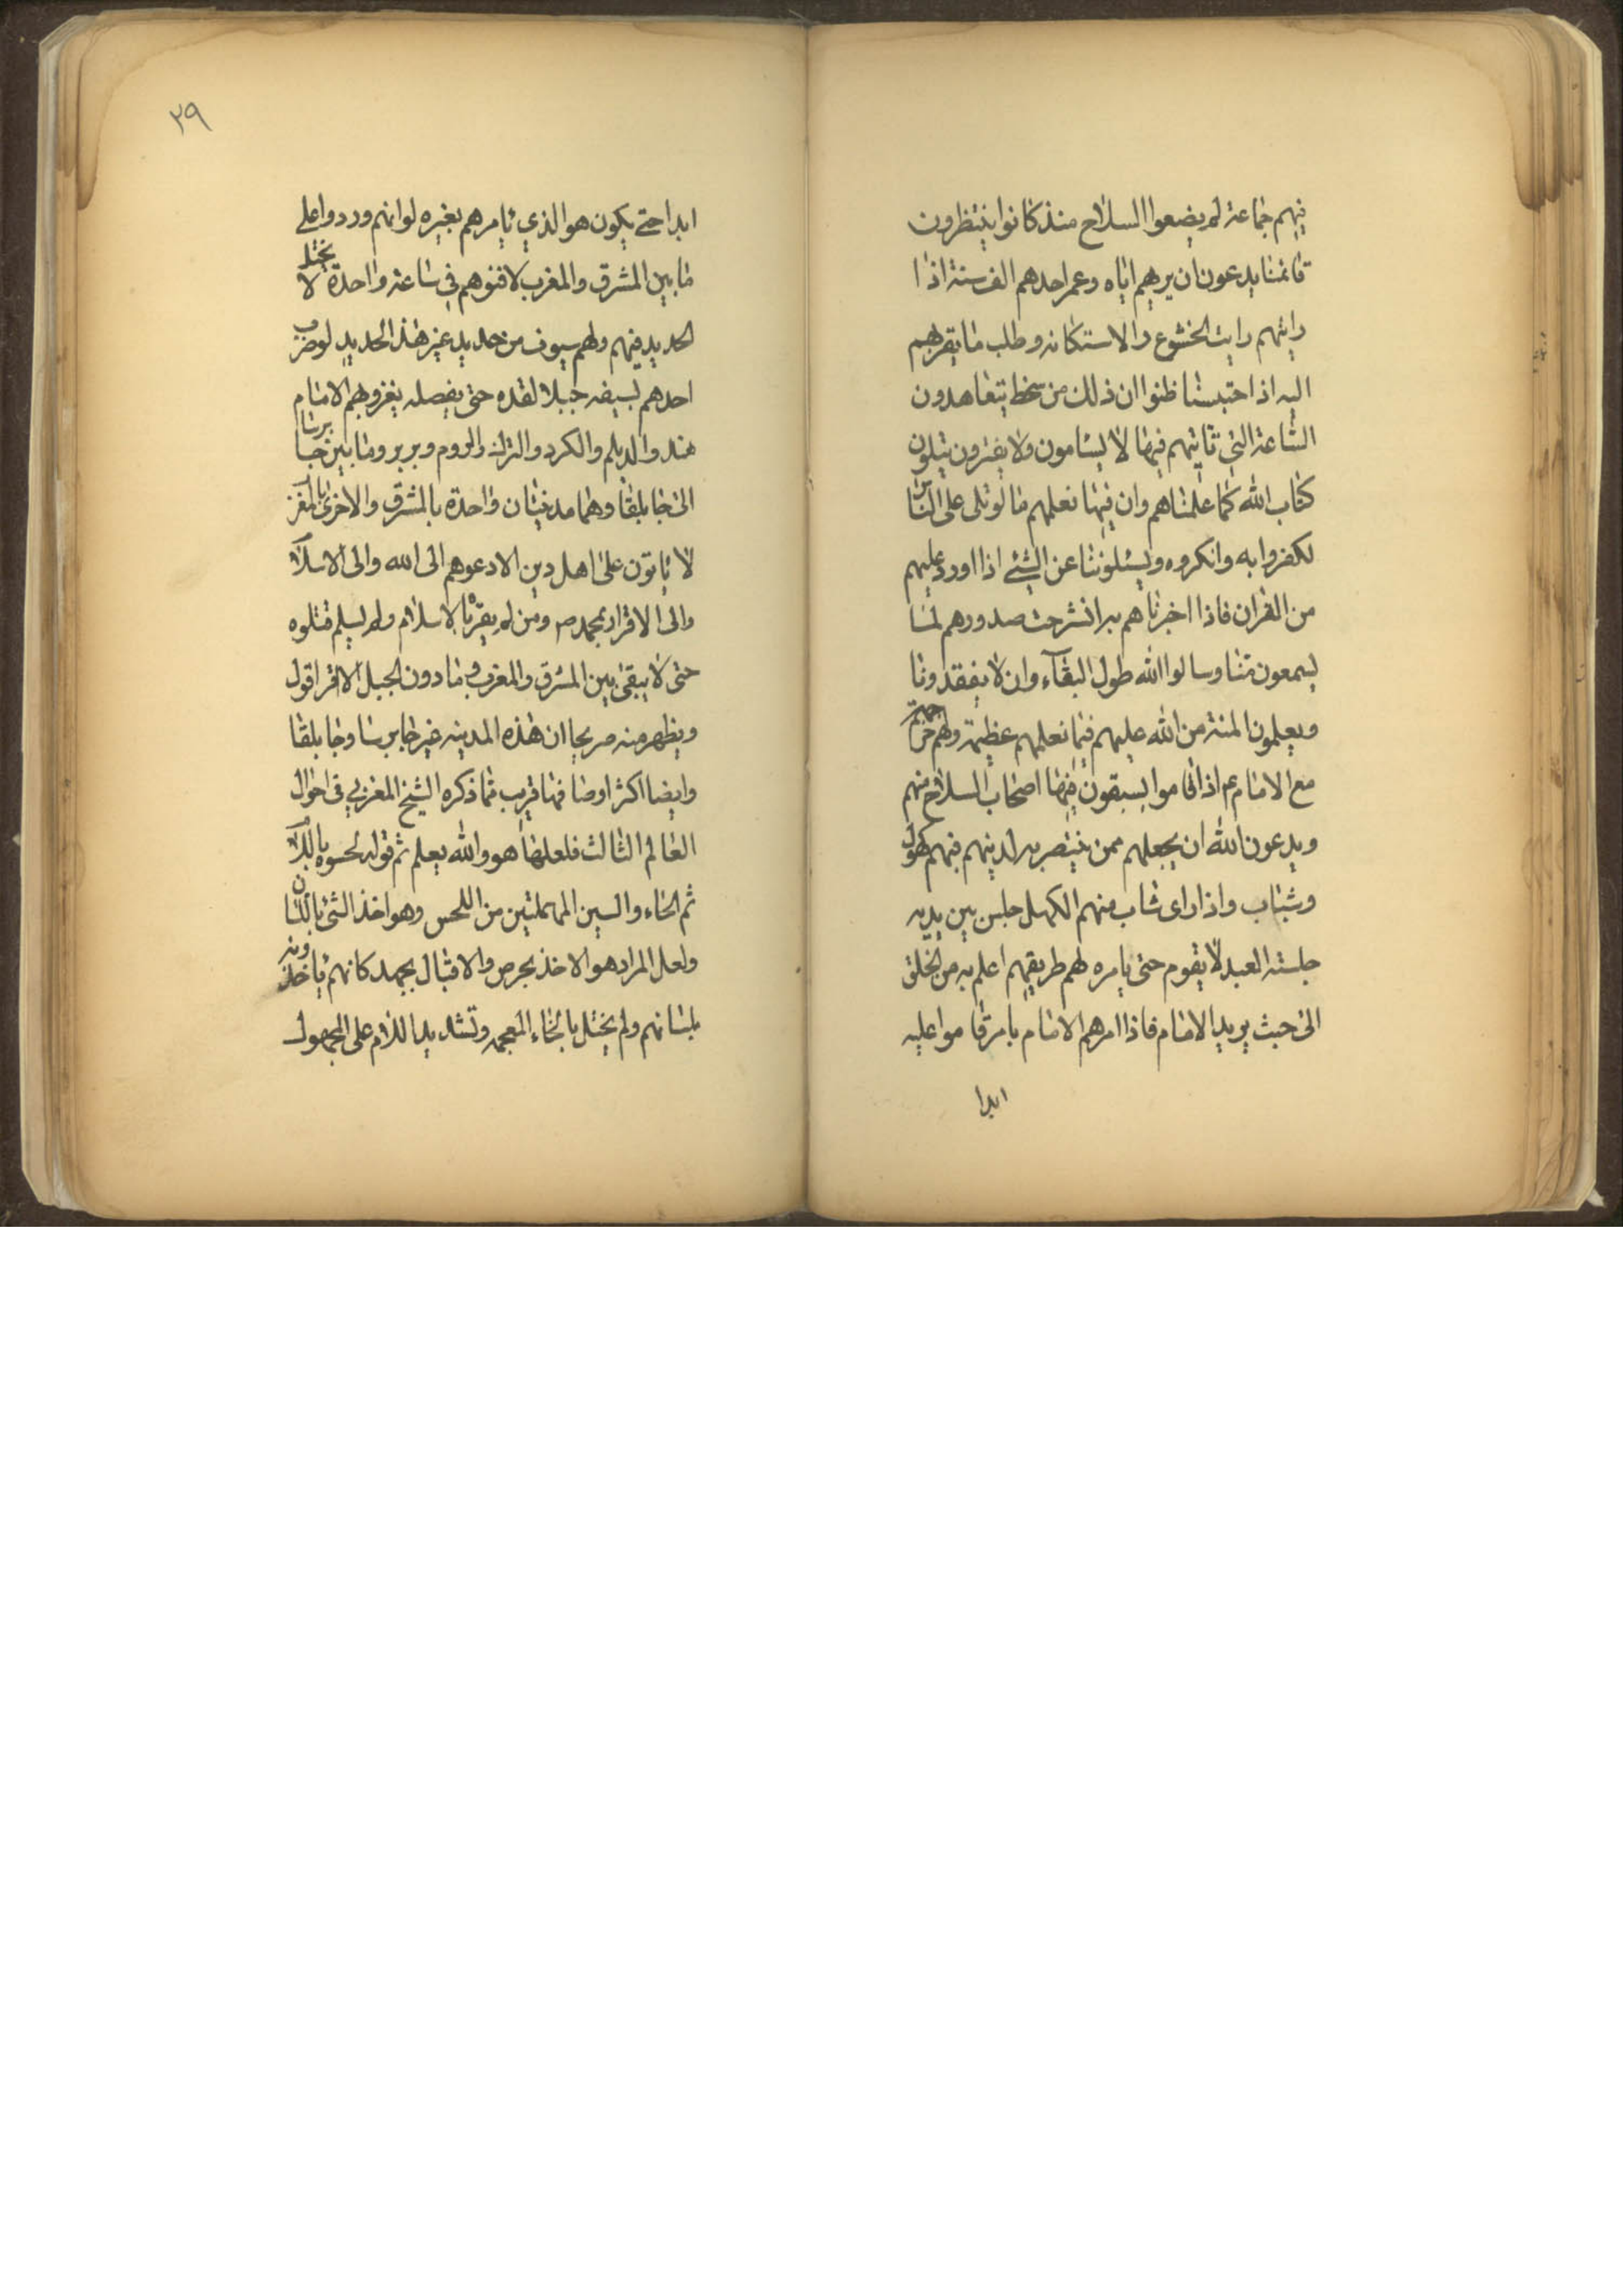 فيهم جماعة لم يضعوا السلاح منذ كانوا ينتظرون
قائمنا يدعون ان يريهم اياه وعمر احدهم الف سنة اذا
رايتهم رايت الخشوع والاستكانه وطلب ما يقربهم
اليه اذا احتبسنا ظنوا ان ذلك من سخط يتعاهدون
الساعة التي تاتيهم فيها لا يسامون ولا يفترون يتلون
كتاب الله كما علمناهم وان فيها نعلمهم ما لو تلى على الناس
لكفروا به وانكروه ويسئلوننا عن الشئ اذا اورد عليهم
من القران فاذا اخبرناهم به انشرحت صدورهم لما
يسمعون منا وسالوا الله طول البقاء وان لا يفقدونا
ويعلمون المنة من الله عليهم فيما نعلمهم عظيمة ولهم خرجة
مع الامام ع اذا قاموا يسبقون فيها اصحاب السلاح منهم
ويدعون الله ان يجعلهم ممن ينتصر به لدينهم فيهم كهول
وشباب واذا راى شاب منهم الكهل جلس بين يديه
جلسة العبد لا يقوم حتى يامره لهم طريق هم اعلم به من الخلق
الى حيث يريد الامام فاذا امرهم الامام بامر قاموا عليه
ابدا
٢٩
ابدا حتى يكون هو الذي يامرهم بغيره لو انهم وردوا على
ما بين المشرق والمغرب لافنوهم في ساعة واحدة لا يختل
الحديد فيهم ولهم سيوف من حديد غير هذا الحديد لو ضرب
احدهم بسيفه جبلا لقده حتى يفصله يغزو بهم الامام
هند والديلم والكرد والترك والروم وبربر وما بين جابرسا
الى جابلقا وهما مدينتان واحدة بالمشرق والاخرى بالمغرب
لا ياتون على اهل دين الا دعوهم الى الله والى الاسلام
والى الاقرار بمحمد ص ومن لم يقر بالاسلام ولم يسلم قتلوه
حتى لا يبقى بين المشرق والمغرب وما دون الجبل الا اقر اقول
ويظهر منه صريحا ان هذه المدينه غير جابرسا وجابلقا
وايضا اكثر اوصافها قريب مما ذكره الشيخ المغربي في احوال
العالم الثالث فلعلها هو والله يعلم ثم قوله لحسوه باللام
ثم الحاء والسين المهملتين من اللحس وهو اخذ الشئ باللسان
ولعل المراد هو الاخذ بحرص والاقبال بجهد كانهم ياخذونه
بلسانهم ولم يختل بالخاء المعجمه وتشديد اللام على المجهول